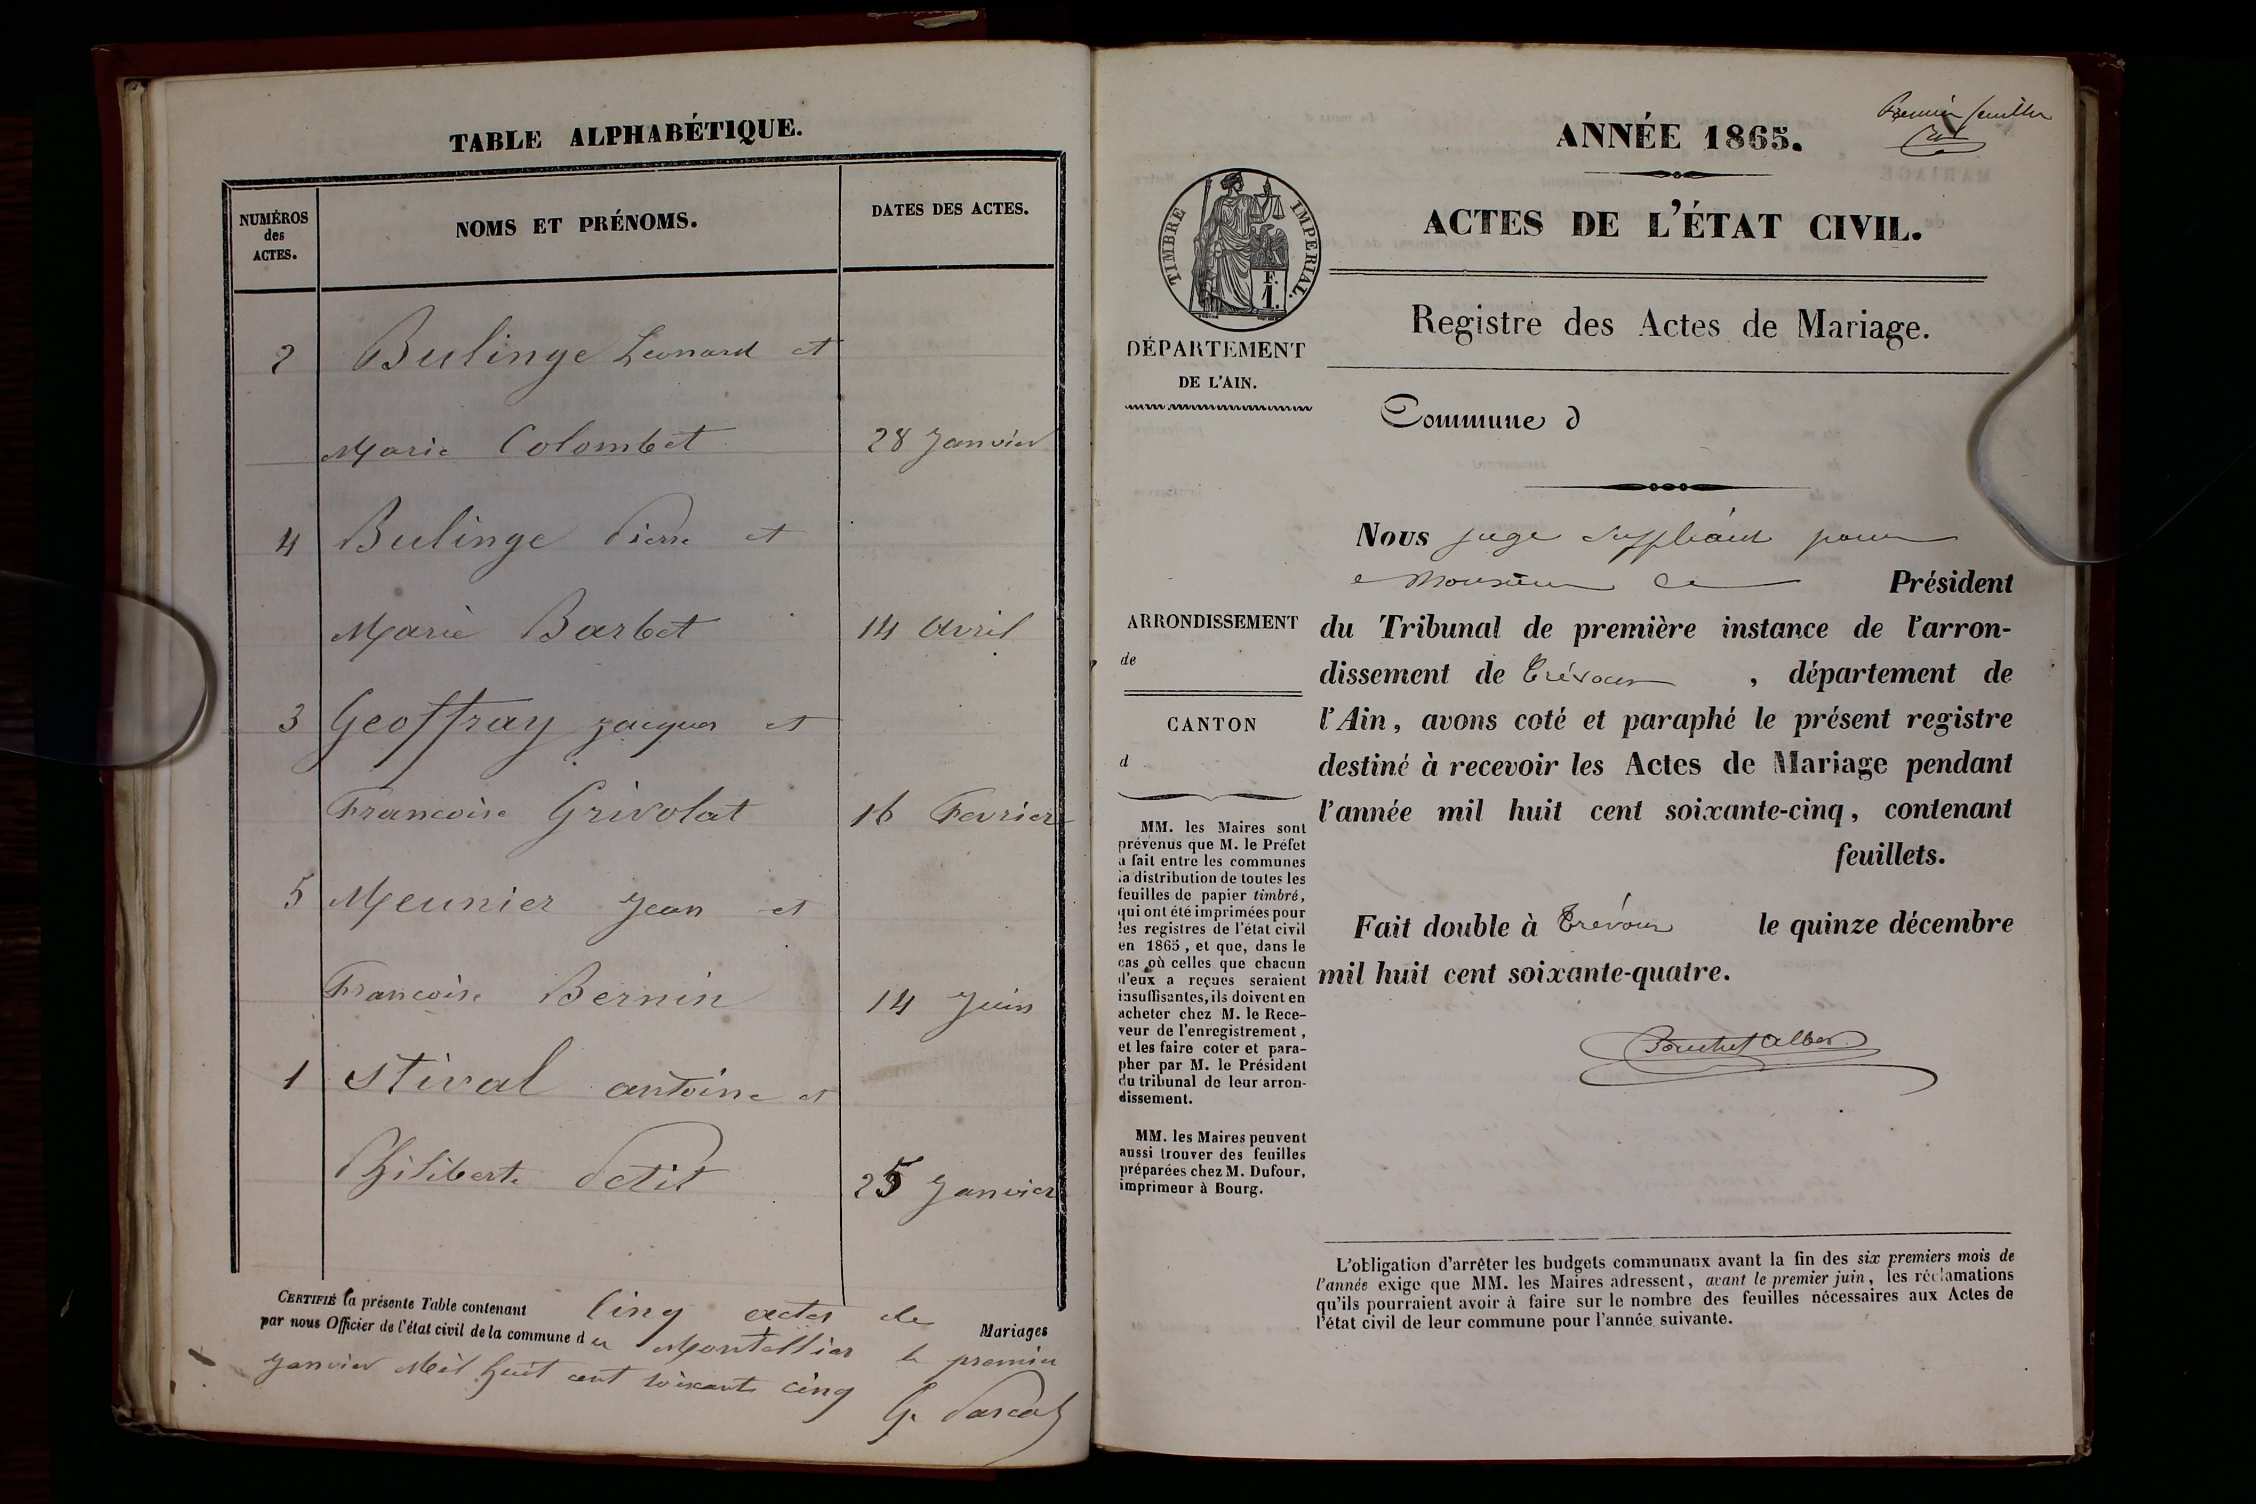 TABLE ALPHABÉTIQUE.
NUMÉROS
des
ACTES.
NOMS ET PRÉNOMS.
DATES DES ACTES.
2 Bulinge Leonard et
Marie Colombet 28 Janvier
4 Bulinge Pierre et
Marie Barbet 14 Avril
3 Geoffray Jacques et
Francoise Grivolat 16 Fevrier
5 Meunier Jean et
Francoise Bernin 14 Juin
1 Stival antoine et
Philiberte Petit 25 Janvier
CERTIFIÉ la présente Table contenant Cinq actes de Mariages
par nous Officier de l'état civil de la commune d u Montellier le premier
Janvier Mil huit cent soixante cinq
G. Pascal
Premier feuillet
ANNÉE 1865.
ACTES DE L'ÉTAT CIVIL.
TIMBRE IMPERIAL.
F.
1.
Registre des Actes de Mariage.
DÉPARTEMENT
DE L'AIN.
Commune d
Nous juge suppléant pour
Monsieur le Président
du Tribunal de première instance de l'arron-
dissement de Trévoux , département de
l'Ain, avons coté et paraphé le présent registre
destiné à recevoir les Actes de Mariage pendant
l'année mil huit cent soixante-cinq, contenant
feuillets.
Fait double à Trévoux le quinze décembre
mil huit cent soixante-quatre.
ARRONDISSEMENT
de
CANTON
d
MM. les Maires sont
prévenus que M. le Préfet
a fait entre les communes
la distribution de toutes les
feuilles de papier timbré,
qui ont été imprimées pour
les registres de l'état civil
en 1865, et que, dans le
cas où celles que chacun
d'eux a reçues seraient
insuffisantes, ils doivent en
acheter chez M. le Rece-
veur de l'enregistrement,
et les faire coter et para-
pher par M. le Président
du tribunal de leur arron-
dissement.
MM. les Maires peuvent
aussi trouver des feuilles
préparées chez M. Dufour,
imprimeur à Bourg.
L'obligation d'arrêter les budgets communaux avant la fin des six premiers mois de
l'année exige que MM. les Maires adressent, avant le premier juin, les réclamations
qu'ils pourraient avoir à faire sur le nombre des feuilles nécessaires aux Actes de
l'état civil de leur commune pour l'année suivante.